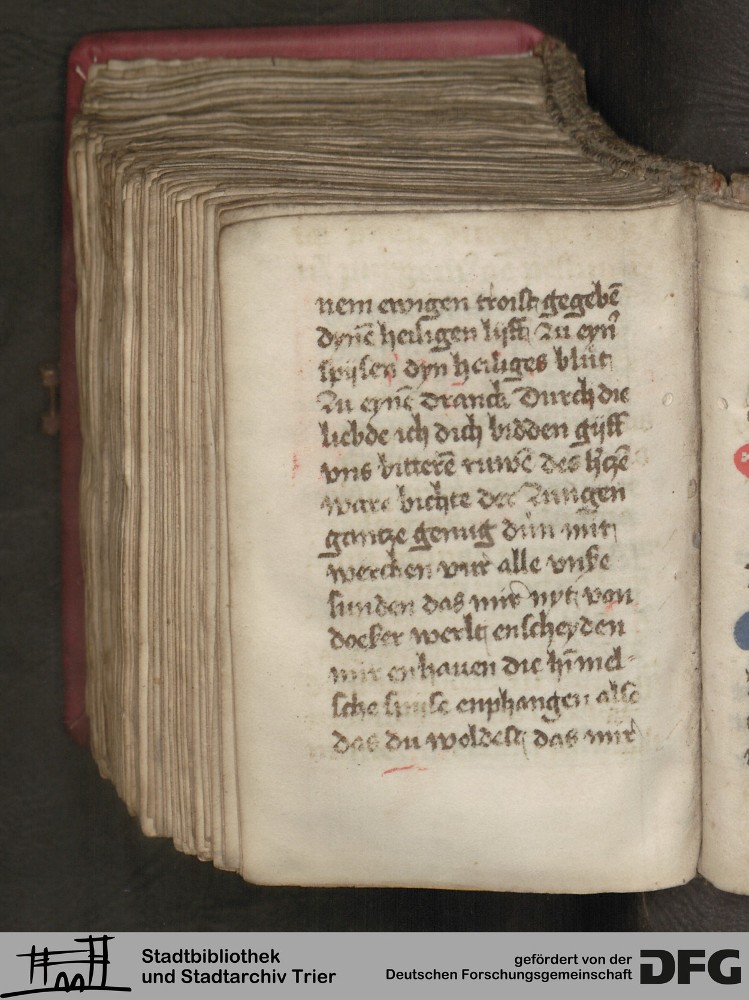 nem ewigen troist gegebē
dynē heiligen lijff Zu eyn̄
spijsen dyn heiliges blut
Zu eynē dranck Durch die
liebde ich dich bidden gijff
vns bitterē ruwē des h̄cē
ware bichte der Zungen
gantze genug dun mit
wercken vur alle vnse
sunden das mir nyt von
doeser werlt enscheyden
mir enhauen die hīmel-
sche spise enphangen alse
das du woldest das mir
Stadtbibliothek
und Stadtarchiv Trier
gefördert von der
Deutschen Forschungsgemeinschaft
DFG